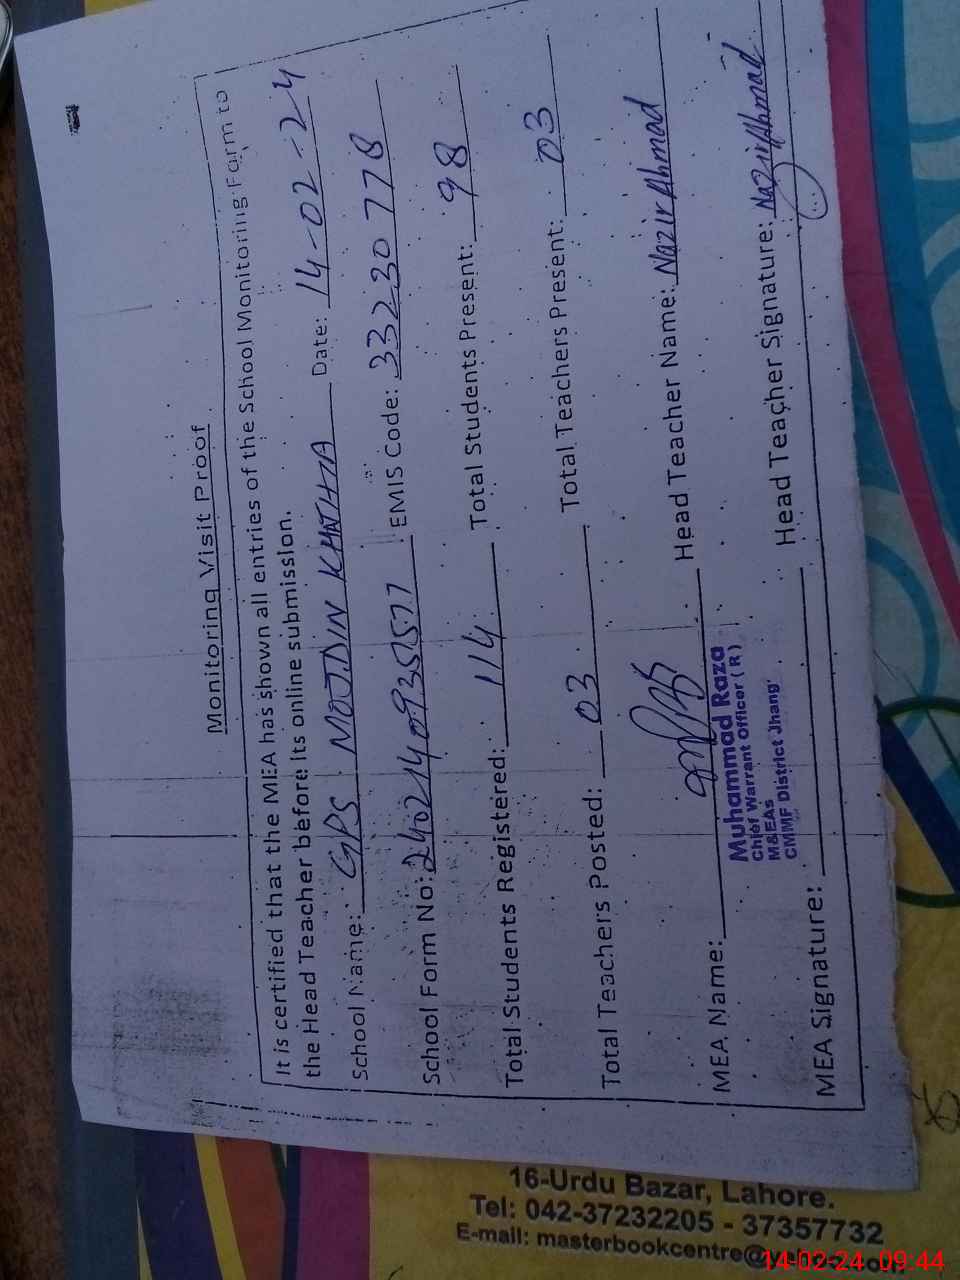 Monitoring Visit Proof
It is certified that the MEA has shown all entries of the School Monitoring Form to
the Head Teacher before Its online submission.
School Name: GPS MOJDIN KHATHIA Date: 14-02-24
School Form No: 240214093557 EMIS Code: 33230778
Total Students Registered: 114 Total Students Present: 98
Total Teachers Posted: 03 Total Teachers Present: 03
MEA Name: Head Teacher Name: Nazir Ahmad
Muhammad Raza
Chief Warrant Officer (R)
M&EAs
CMMF District Jhang
MEA Signature: Head Teacher Signature: Nazir Ahmad
16-Urdu Bazar, Lahore.
Tel: 042-37232205 - 37357732
E-mail: masterbookcentre@
14-02-24 09:44